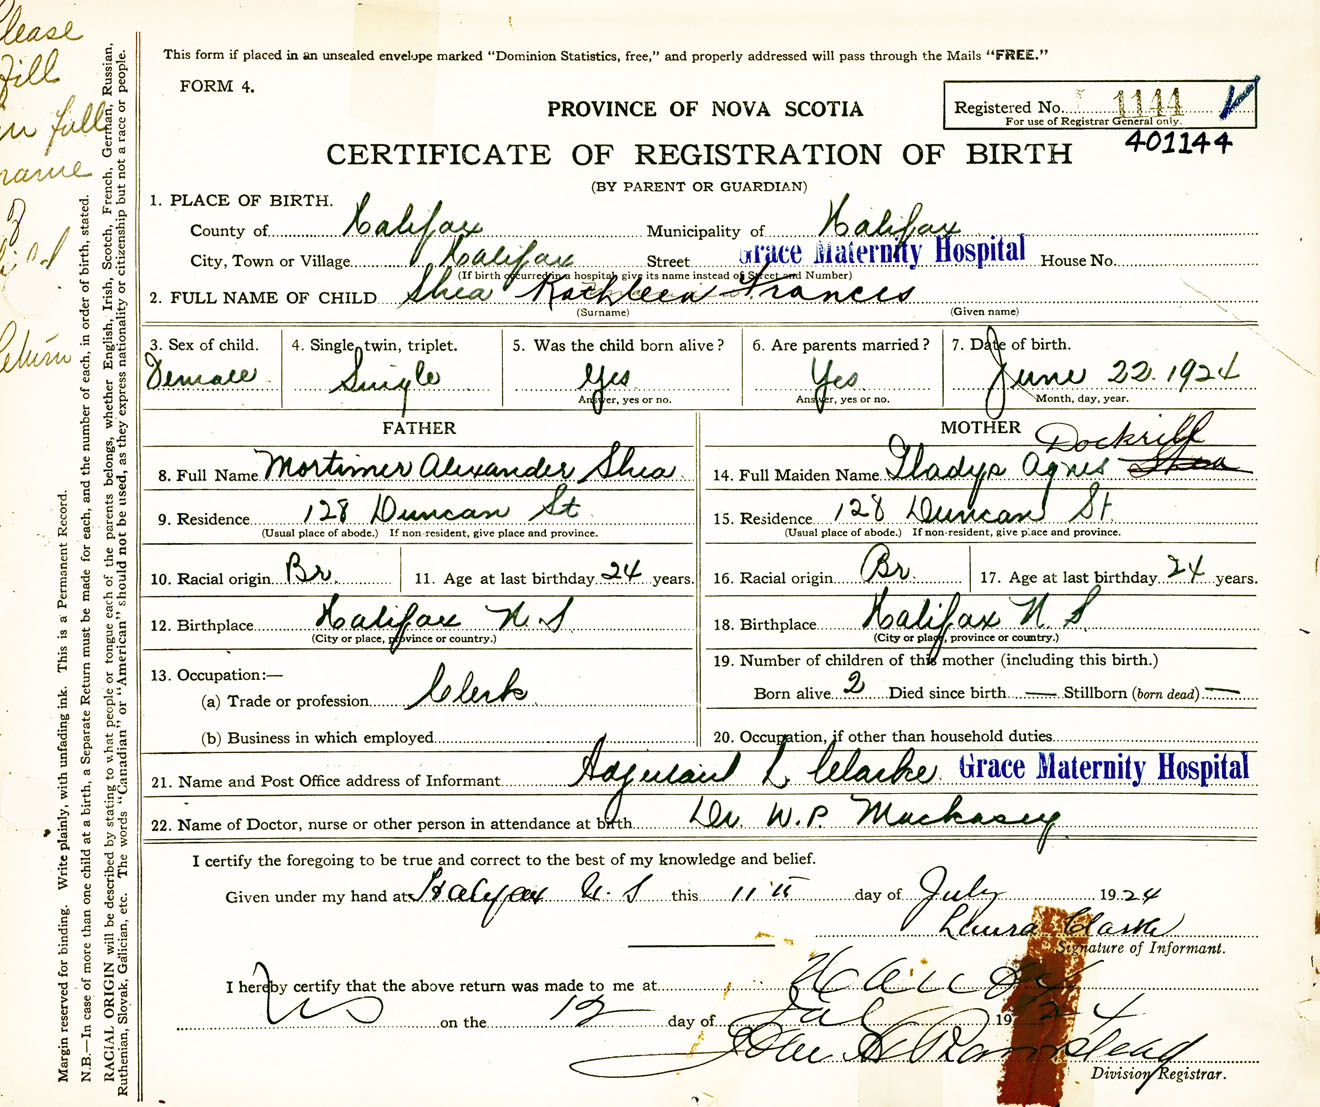 This form if placed in an unsealed envelope marked "Dominion Statistics, free," and properly addressed will pass through the Mails "FREE."
FORM 4.
PROVINCE OF NOVA SCOTIA
Registered No. 1144
For use of Registrar General only.
401144
CERTIFICATE OF REGISTRATION OF BIRTH
(BY PARENT OR GUARDIAN)
1. PLACE OF BIRTH.
County of Halifax Municipality of Halifax
City, Town or Village Halifax Street Grace Maternity Hospital House No.
(If birth occurred in a hospital give its name instead of Street and Number)
2. FULL NAME OF CHILD Shea Kathleen Frances
(Surname) (Given name)
3. Sex of child. 4. Single, twin, triplet. 5. Was the child born alive? 6. Are parents married? 7. Date of birth.
Female Single Yes Yes June 22. 1924
Answer, yes or no. Answer, yes or no. Month, day, year.
FATHER
8. Full Name Mortimer Alexander Shea
9. Residence 128 Duncan St
(Usual place of abode.) If non-resident, give place and province.
10. Racial origin Br. 11. Age at last birthday 24 years.
12. Birthplace Halifax N.S
(City or place, province or country.)
13. Occupation:—
(a) Trade or profession Clerk
(b) Business in which employed
MOTHER
Dockrill
14. Full Maiden Name Gladys Agnes Shea
15. Residence 128 Duncan St.
(Usual place of abode.) If non-resident, give place and province.
16. Racial origin Br. 17. Age at last birthday 24 years.
18. Birthplace Halifax N S
(City or place, province or country.)
19. Number of children of this mother (including this birth.)
Born alive 2 Died since birth — Stillborn (born dead) —
20. Occupation, if other than household duties
21. Name and Post Office address of Informant Adjutant L Clarke Grace Maternity Hospital
22. Name of Doctor, nurse or other person in attendance at birth Dr. W.P. Mackasey
I certify the foregoing to be true and correct to the best of my knowledge and belief.
Given under my hand at Halifax N.S this 11 day of July 1924
Laura Clarke
Signature of Informant.
I hereby certify that the above return was made to me at Halifax
NS on the 12 day of July 1924
John
Division Registrar.
Margin reserved for binding. Write plainly, with unfading ink. This is a Permanent Record.
N.B.—In case of more than one child at a birth, a Separate Return must be made for each, and the number of each, in order of birth, stated.
RACIAL ORIGIN will be described by stating to what people or tongue each of the parents belongs, whether English, Irish, Scotch, French, German, Russian,
Ruthenian, Slovak, Galician, etc. The words "Canadian" or "American" should not be used, as they express nationality or citizenship but not a race or people.
lease
fill
in full
name
of
Return